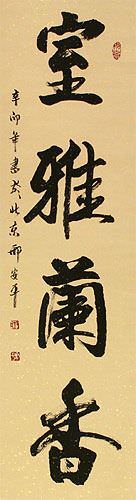 室雅蘭香
辛卯年書於北京邢安平